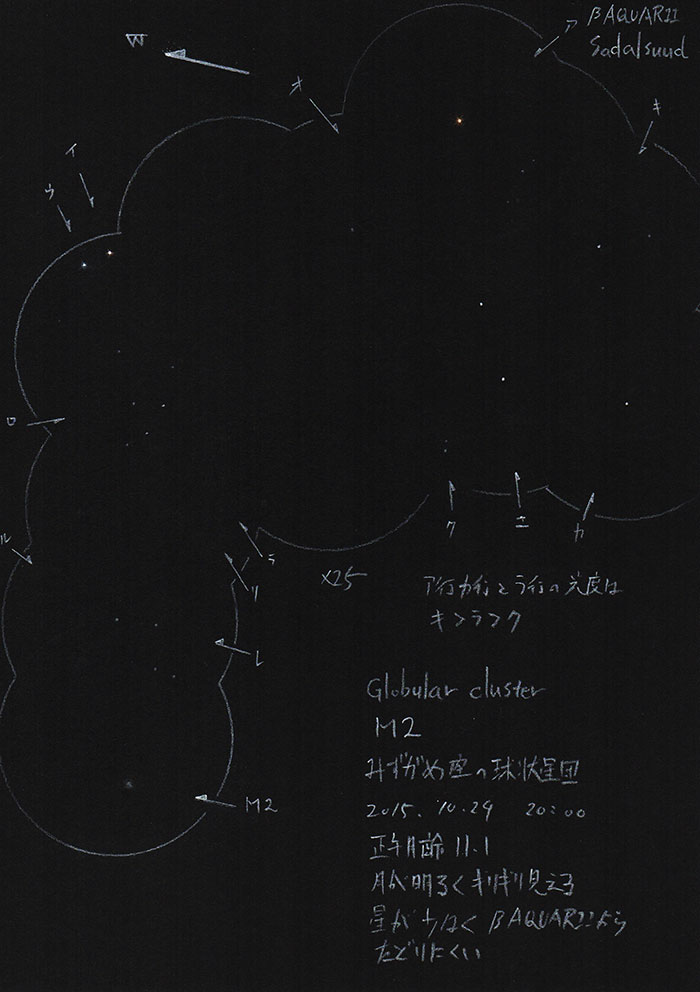 W
β AQUARII
Sadalsuud
ア
オ
キ
イ
ウ
ロ
ル
ラ
リ
レ
ク
エ
カ
×25
ア行カ行とラ行の光度は
キンランク
Globular cluster
M2
M2
みずがめ座の球状星団
2015. 10. 29 20:00
正午月齢 11.1
月が明るくギリギリ見える
星が少なく β AQUARIIから
たどりにくい